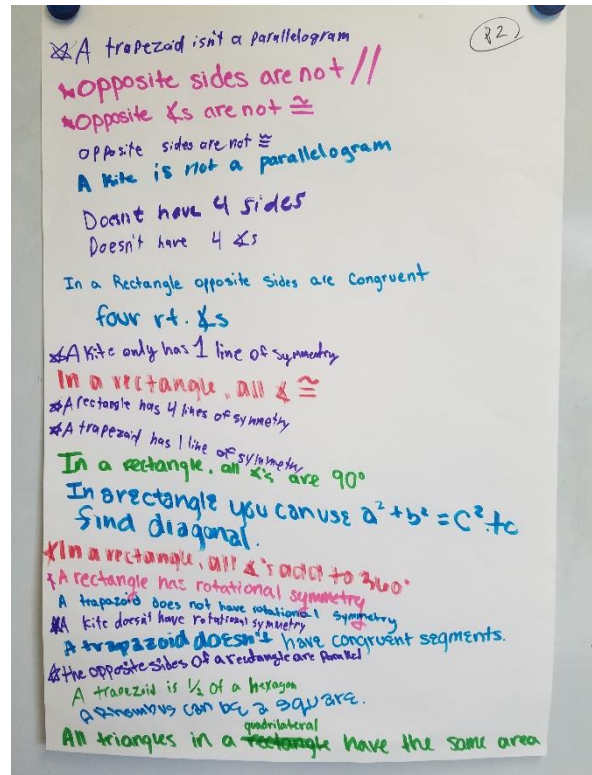 ☆A trapezoid isn't a parallelogram
P2
*Opposite sides are not //
*Opposite ∡s are not ≅
opposite sides are not ≅
A kite is not a parallelogram
Doesnt have 4 sides
Doesn't have 4 ∡s
In a Rectangle opposite sides are Congruent
four rt. ∡s
☆A kite only has 1 line of symmentry
In a rectangle, all ∡ ≅
☆A rectangle has 4 lines of symmetry
☆A trapezoid has 1 line of symmetry
In a rectangle, all ∡'s are 90°
In arectangle you can use a² + b² = C² to
find diagonal.
*In a rectangle, all ∡'s add to 360°
*A rectangle has rotational symmetry
A trapazoid does not have rotational symmetry
☆A kite doesn't have rotational symmetry
A trapazoid doesn't have congruent segments.
☆the opposite sides of a rectangle are Parallel
A trapezoid is ½ of a hexagon
a rhombus can be a square.
quadrilateral
All triangles in a rectangle have the same area